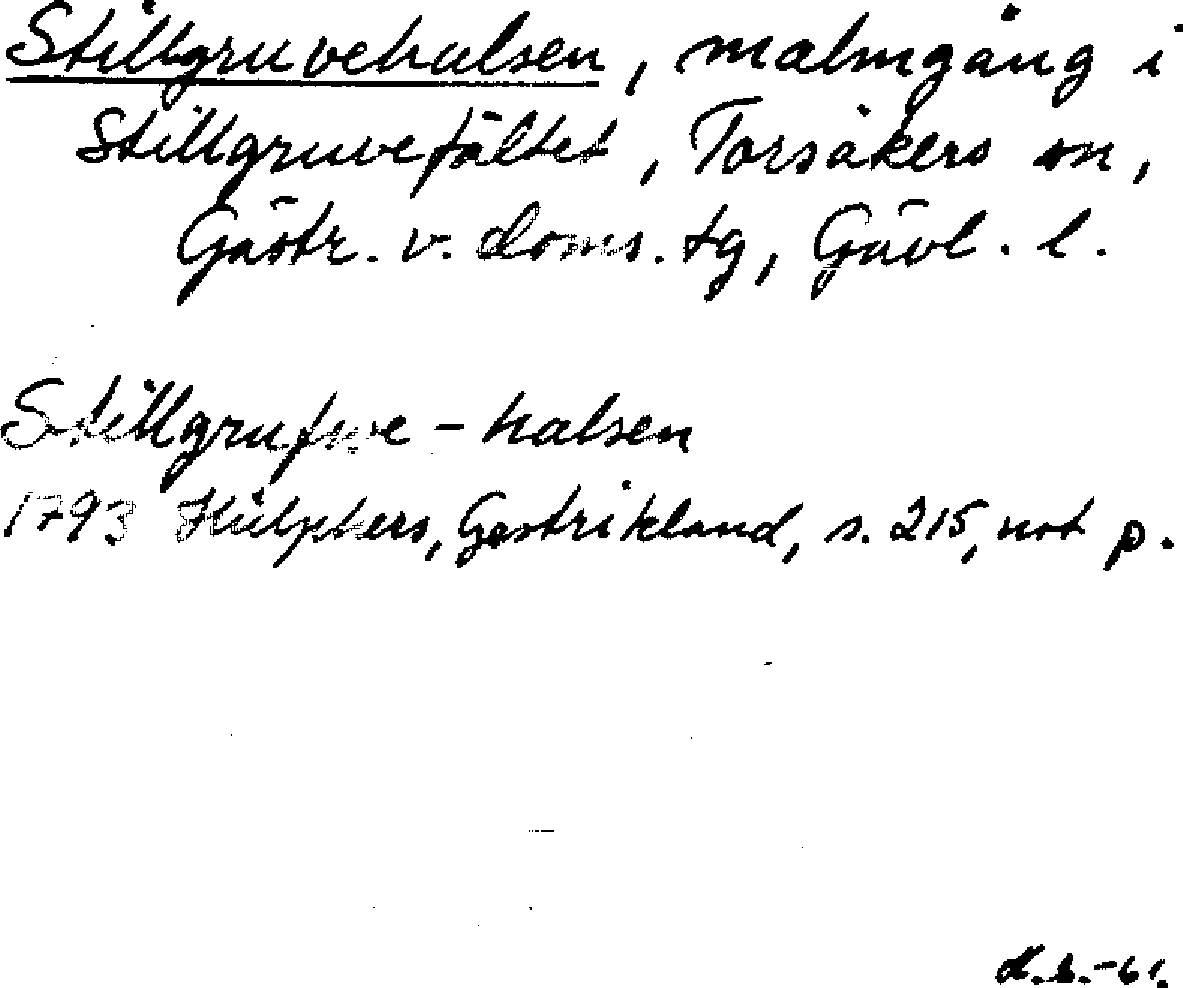 Stillgruvehalsen, malmgång i
Stillgruvefältet, Torsåkers sn,
Gästr. v. doms. tg, Gävl. l.
Stillgrufwe-halsen
1793 Hülphers, Gestrikland, s. 215, not p.
-61.